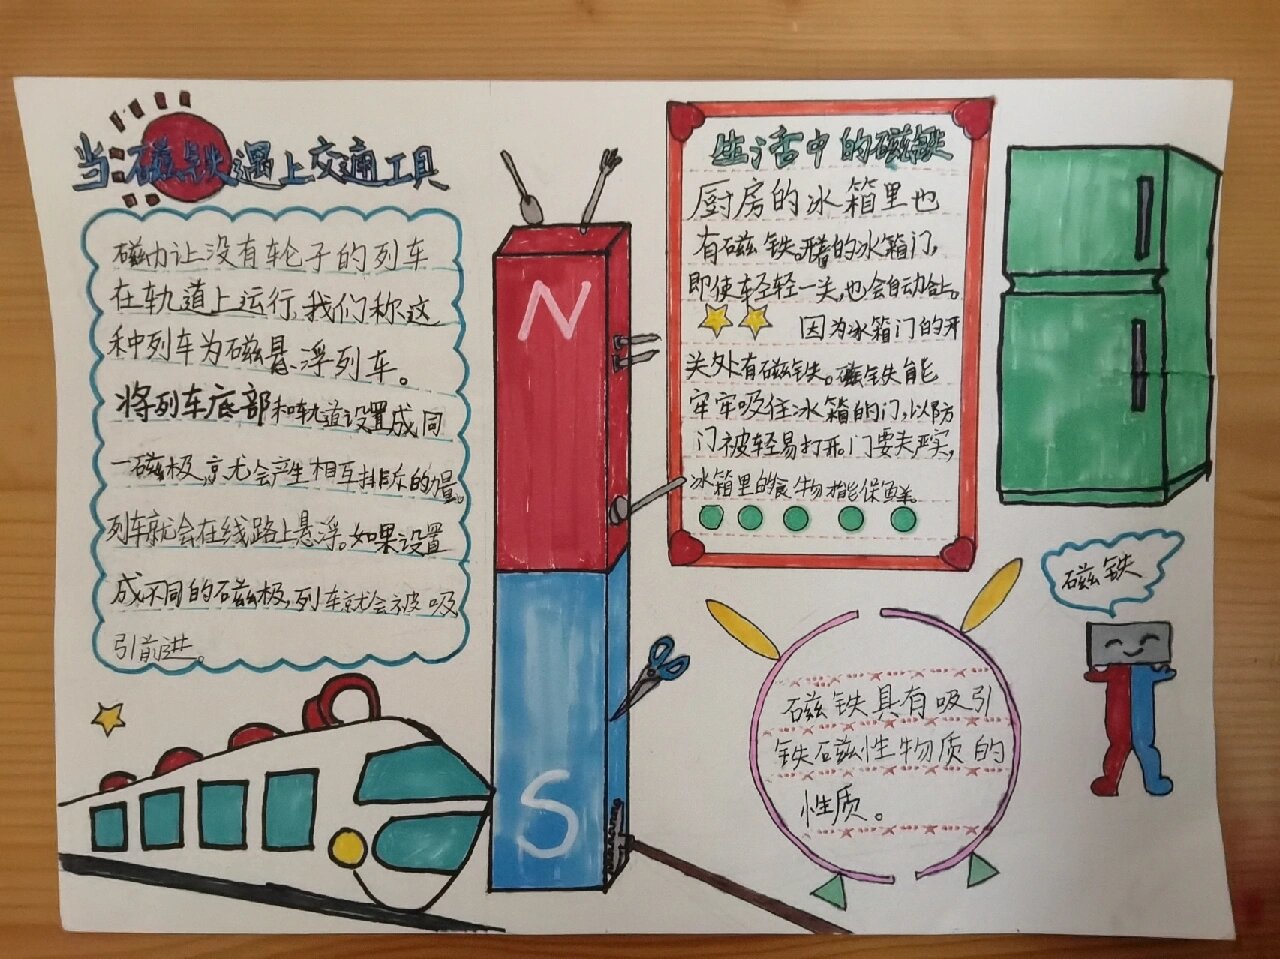 当磁铁遇上交通工具
磁力让没有轮子的列车
在轨道上运行,我们称这
种列车为磁悬浮列车。
将列车底部和轨道设置成同
一磁极,就会产生相互排斥的
列车就会在线路上悬浮。如果设置
成不同的磁极,列车就会被吸
引前进。
N
S
生活中的磁铁
厨房的冰箱里也
有磁铁。开着的冰箱门,
即使轻轻一关,也会自动合上。
因为冰箱门的开
关处有磁铁。磁铁能
牢牢吸住冰箱的门,以防
门被轻易打开。门要关严实,
冰箱里的食物才能保鲜。
磁铁
磁铁具有吸引
铁磁性物质的
性质。